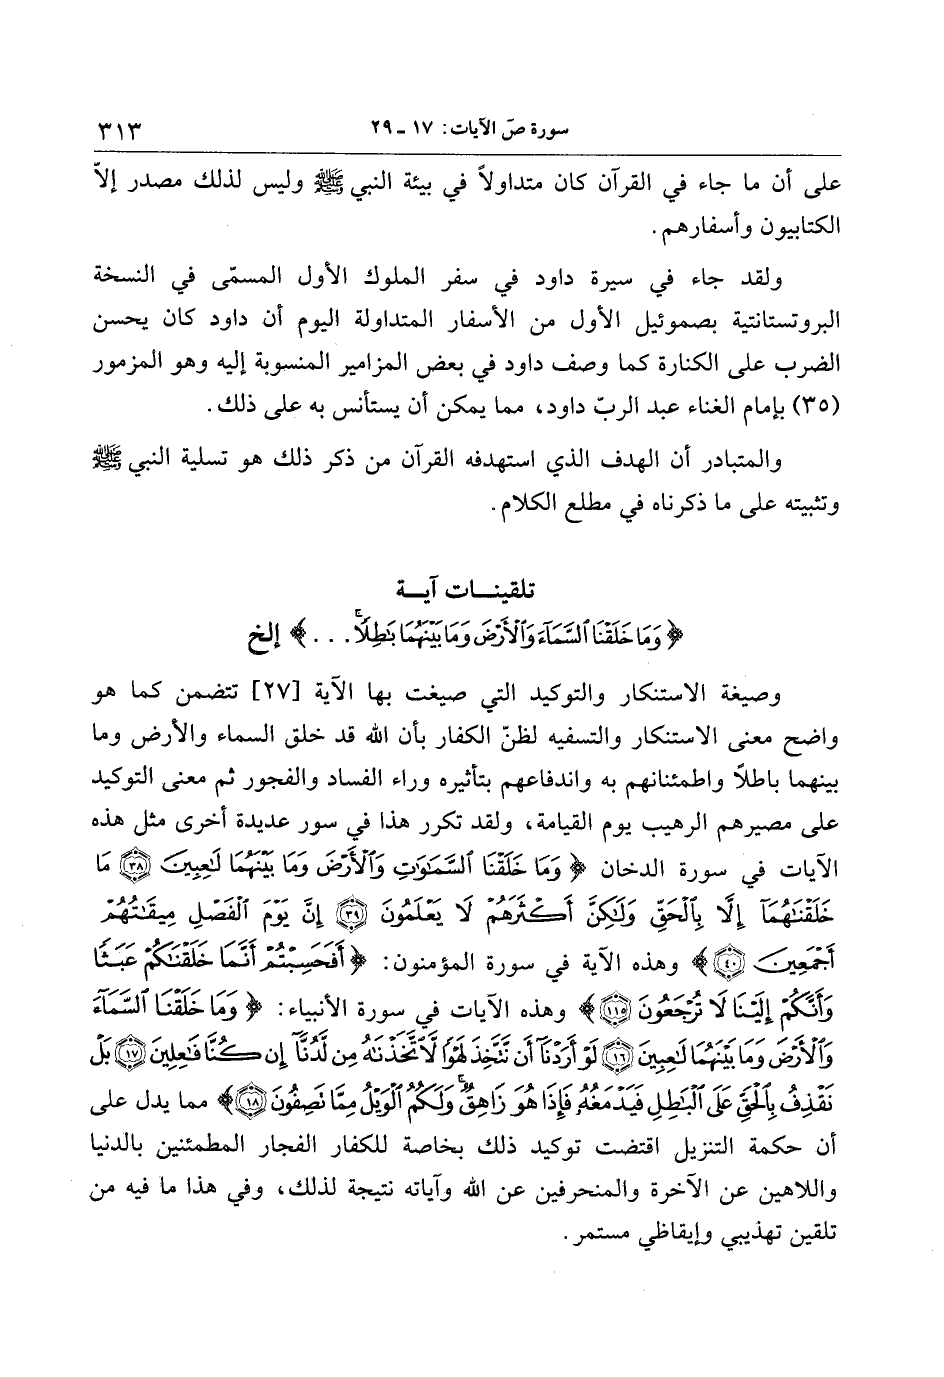 سورة صّ الآيات: ١٧ ـ ٢٩ ٣١٣
على أن ما جاء في القرآن كان متداولاً في بيئة النبي ﷺ وليس لذلك مصدر إلاّ
الكتابيون وأسفارهم.
ولقد جاء في سيرة داود في سفر الملوك الأول المسمّى في النسخة
البروتستانتية بصموئيل الأول من الأسفار المتداولة اليوم أن داود كان يحسن
الضرب على الكنارة كما وصف داود في بعض المزامير المنسوبة إليه وهو المزمور
(٣٥) بإمام الغناء عبد الربّ داود، مما يمكن أن يستأنس به على ذلك.
والمتبادر أن الهدف الذي استهدفه القرآن من ذكر ذلك هو تسلية النبي ﷺ
وتثبيته على ما ذكرناه في مطلع الكلام.
تلقينـات آيـة
﴿ وَمَا خَلَقْنَا ٱلسَّمَآءَ وَٱلْأَرْضَ وَمَا بَيْنَهُمَا بَٰطِلًاۚ . . . ﴾ إلخ
وصيغة الاستنكار والتوكيد التي صيغت بها الآية [٢٧] تتضمن كما هو
واضح معنى الاستنكار والتسفيه لظنّ الكفار بأن الله قد خلق السماء والأرض وما
بينهما باطلاً واطمئنانهم به واندفاعهم بتأثيره وراء الفساد والفجور ثم معنى التوكيد
على مصيرهم الرهيب يوم القيامة، ولقد تكرر هذا في سور عديدة أخرى مثل هذه
الآيات في سورة الدخان ﴿ وَمَا خَلَقْنَا ٱلسَّمَٰوَٰتِ وَٱلْأَرْضَ وَمَا بَيْنَهُمَا لَٰعِبِينَ ٣٨ مَا
خَلَقْنَٰهُمَآ إِلَّا بِٱلْحَقِّ وَلَٰكِنَّ أَكْثَرَهُمْ لَا يَعْلَمُونَ ٣٩ إِنَّ يَوْمَ ٱلْفَصْلِ مِيقَٰتُهُمْ
أَجْمَعِينَ ٤٠ ﴾ وهذه الآية في سورة المؤمنون: ﴿ أَفَحَسِبْتُمْ أَنَّمَا خَلَقْنَٰكُمْ عَبَثًا
وَأَنَّكُمْ إِلَيْنَا لَا تُرْجَعُونَ ١١٥ ﴾ وهذه الآيات في سورة الأنبياء: ﴿ وَمَا خَلَقْنَا ٱلسَّمَآءَ
وَٱلْأَرْضَ وَمَا بَيْنَهُمَا لَٰعِبِينَ ١٦ لَوْ أَرَدْنَآ أَن نَّتَّخِذَ لَهْوًا لَّٱتَّخَذْنَٰهُ مِن لَّدُنَّآ إِن كُنَّا فَٰعِلِينَ ١٧ بَلْ
نَقْذِفُ بِٱلْحَقِّ عَلَى ٱلْبَٰطِلِ فَيَدْمَغُهُۥ فَإِذَا هُوَ زَاهِقٌۚ وَلَكُمُ ٱلْوَيْلُ مِمَّا تَصِفُونَ ١٨ ﴾ مما يدل على
أن حكمة التنزيل اقتضت توكيد ذلك بخاصة للكفار الفجار المطمئنين بالدنيا
واللاهين عن الآخرة والمنحرفين عن الله وآياته نتيجة لذلك، وفي هذا ما فيه من
تلقين تهذيبي وإيقاظي مستمر.